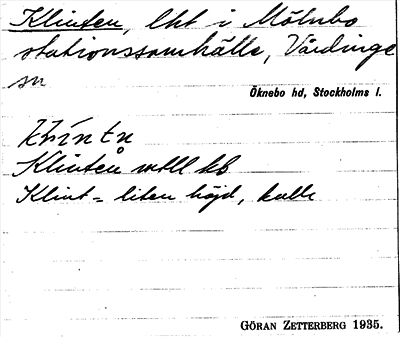 Klinten, lht i Mölnbo
stationssamhälle, Vårdinge
sn
Öknebo hd, Stockholms l.
Klinten uttl kb
Klint = liten höjd, kulle
GÖRAN ZETTERBERG 1935.